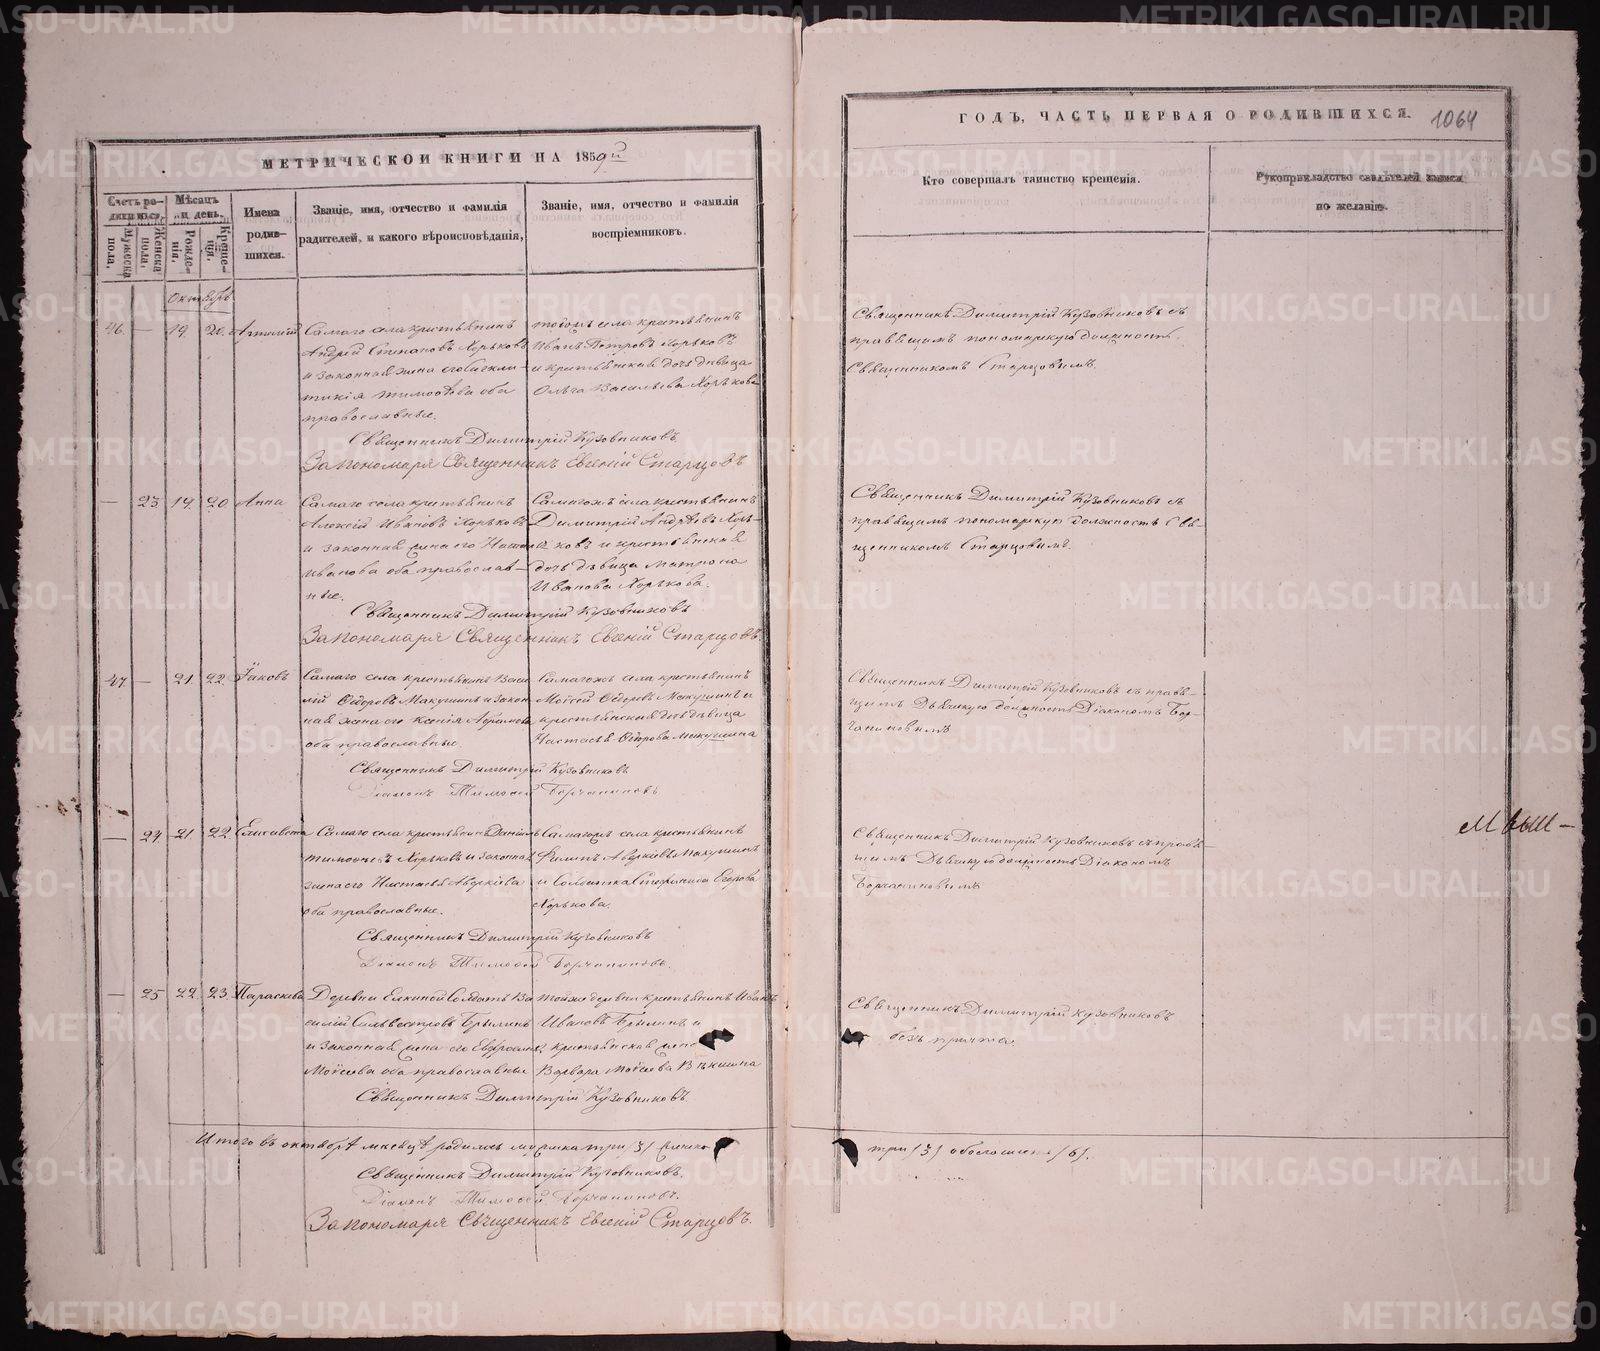 МЕТРИЧЕСКОЙ КНИГИ НА 1859й
Счетъ родившихся.
Мужеска пола.
Женска пола.
Мѣсяцъ и день.
Рожденія.
Крещенія.
Имена родившихся.
Званіе, имя, отчество и фамилія
радителей, и какого вѣроисповѣданія,
Званіе, имя, отчество и фамилія
воспріемниковъ.
Октябрь
46. — 19. 20.
Самаго села крестьянинъ
Андрей Степановъ Хорьковъ
и законная жена его
Тимофѣева оба
православные.
тогожъ села крестьянинъ
Иванъ Петровъ Хорьковъ
и крестьянская дочь дѣвица
Ольга Васильева Хорькова
Священникъ Димитрій Кузовниковъ
За пономаря Священникъ Евгеній Старцовъ
— 23. 19. 20 Анна
Самаго села крестьянинъ
Алексій Ивановъ Хорьковъ
и законная жена его
Иванова оба православ-
ные.
Самагожъ села крестьянинъ
Димитрій Андреевъ Хорь-
ковъ и крестьянская
дочь дѣвица Матрона
Иванова Хорькова.
Священникъ Димитрій Кузовниковъ
За пономаря Священникъ Евгеній Старцовъ.
47. — 21. 22. Іаковъ
Самаго села крестьянинъ Васи
лій Ѳедоровъ Макушинъ и закон
ная жена его Ксенія
оба православные.
Самагожъ села крестьянинъ
Моѵсей Ѳедоровъ Макушинъ и
крестьянская дочь дѣвица
Настасья Ѳедорова Макушина
Священникъ Димитрій Кузовниковъ
Діаконъ Тимоѳей
— 24. 21. 22. Елисавета
Самаго села крестьянинъ Даніилъ
Тимоѳеевъ Хорьковъ и законная
жена его Настасья Аверкіева
оба православные.
Самагожъ села крестьянинъ
Филипъ Аверкіевъ Макушинъ
и Солдатка Стефанида Егорова
Хорькова.
Священникъ Димитрій Кузовниковъ
Діаконъ Тимоѳей
— 25 22. 23. Параскева
Деревни Елкиной Солдатъ Ва
силій Сильвестровъ Брылинъ
и законная жена его Евфросинія
Моѵсеева оба православные
Тойже деревни крестьянинъ Иванъ
Ивановъ Брылинъ и
крестьянская жена
Варвара Моѵсеева
Священникъ Димитрій Кузовниковъ.
Итого въ октябрѣ мѣсяцѣ родилось мужска три /3/ женска
Священникъ Димитрій Кузовниковъ.
Діаконъ Тимоѳей
За пономаря Священникъ Евгеній Старцовъ.
ГОДЪ, ЧАСТЬ ПЕРВАЯ О РОДИВШИХСЯ.
1064
Кто совершалъ таинство крещенія.
Рукоприкладство свидѣтелей записи
по желанію.
Священникъ Димитрій Кузовниковъ съ
правящимъ пономарскую должность
Священникомъ Старцовымъ.
Священникъ Димитрій Кузовниковъ съ
правящимъ пономарскую должность Свя-
щенникомъ Старцовымъ.
Священникъ Димитрій Кузовниковъ съ правя-
щимъ Дьячкую должность Діакономъ
Священникъ Димитрій Кузовниковъ съ правя-
щимъ Дьячкую должность Діакономъ
Священникъ Димитрій Кузовниковъ
безъ причта.
три /3/ обоего пола /6/.
METRIKI.GASO-URAL.RU